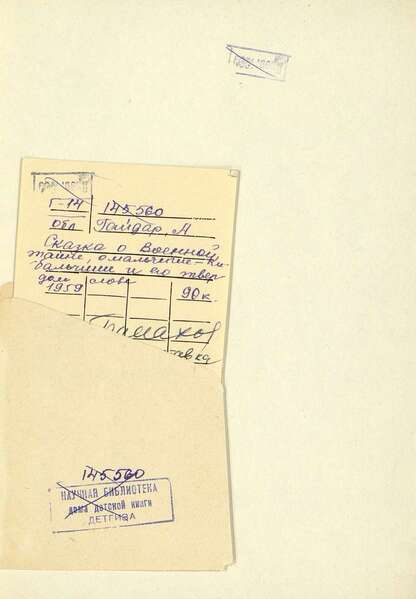 Г-14
145560
обл
Гайдар А.
Сказка о Военной
тайне, о мальчише-Ки-
бальчише и его твер
дом слове
1959
90к.
145560
НАУЧНАЯ БИБЛИОТЕКА
дома детской книги
ДЕТГИЗА